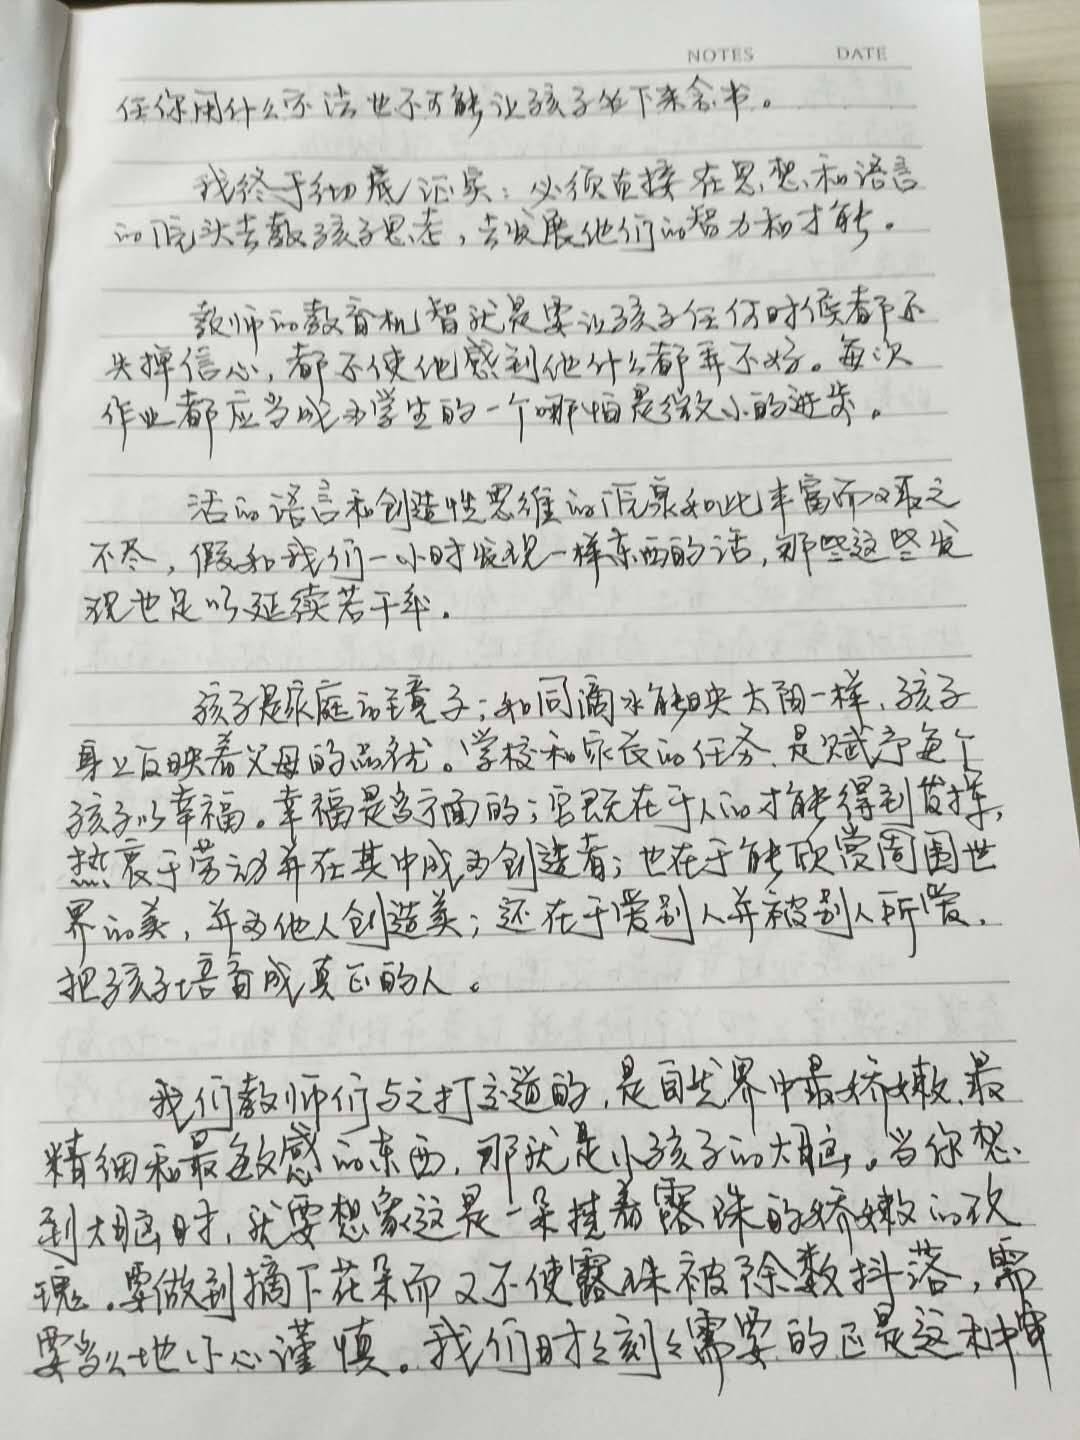 NOTES DATE
任你用什么办法也不可能让孩子坐下来念书。
我终于彻底证实：必须直接在思想和语言
的源头去教孩子思考，去发展他们的智力和才能。
教师的教育机智就是要让孩子任何时候都不
失掉信心，都不使他感到他什么都弄不好。每次
作业都应当成为学生的一个哪怕是微小的进步。
活的语言和创造性思维的源泉如此丰富而又取之
不尽，假如我们一小时发现一样东西的话，那些这些发
现也足以延续若干年。
孩子是家庭的镜子；如同滴水能映太阳一样，孩子
身上反映着父母的品德。学校和家长的任务，是赋予每个
孩子以幸福。幸福是多方面的；它既在于人的才能得到发挥，
热衷于劳动并在其中成为创造者；也在于能欣赏周围世
界的美，并为他人创造美；还在于爱别人并被别人所爱，
把孩子培育成真正的人。
我们教师们与之打交道的，是自然界中最娇嫩、最
精细和最敏感的东西，那就是小孩子的大脑。当你想
到大脑时，就要想象这是一朵挂着露珠的娇嫩的玫
瑰。要做到摘下花朵而又不使露珠被除数抖落，需
要多么地小心谨慎。我们时时刻刻需要的正是这种审